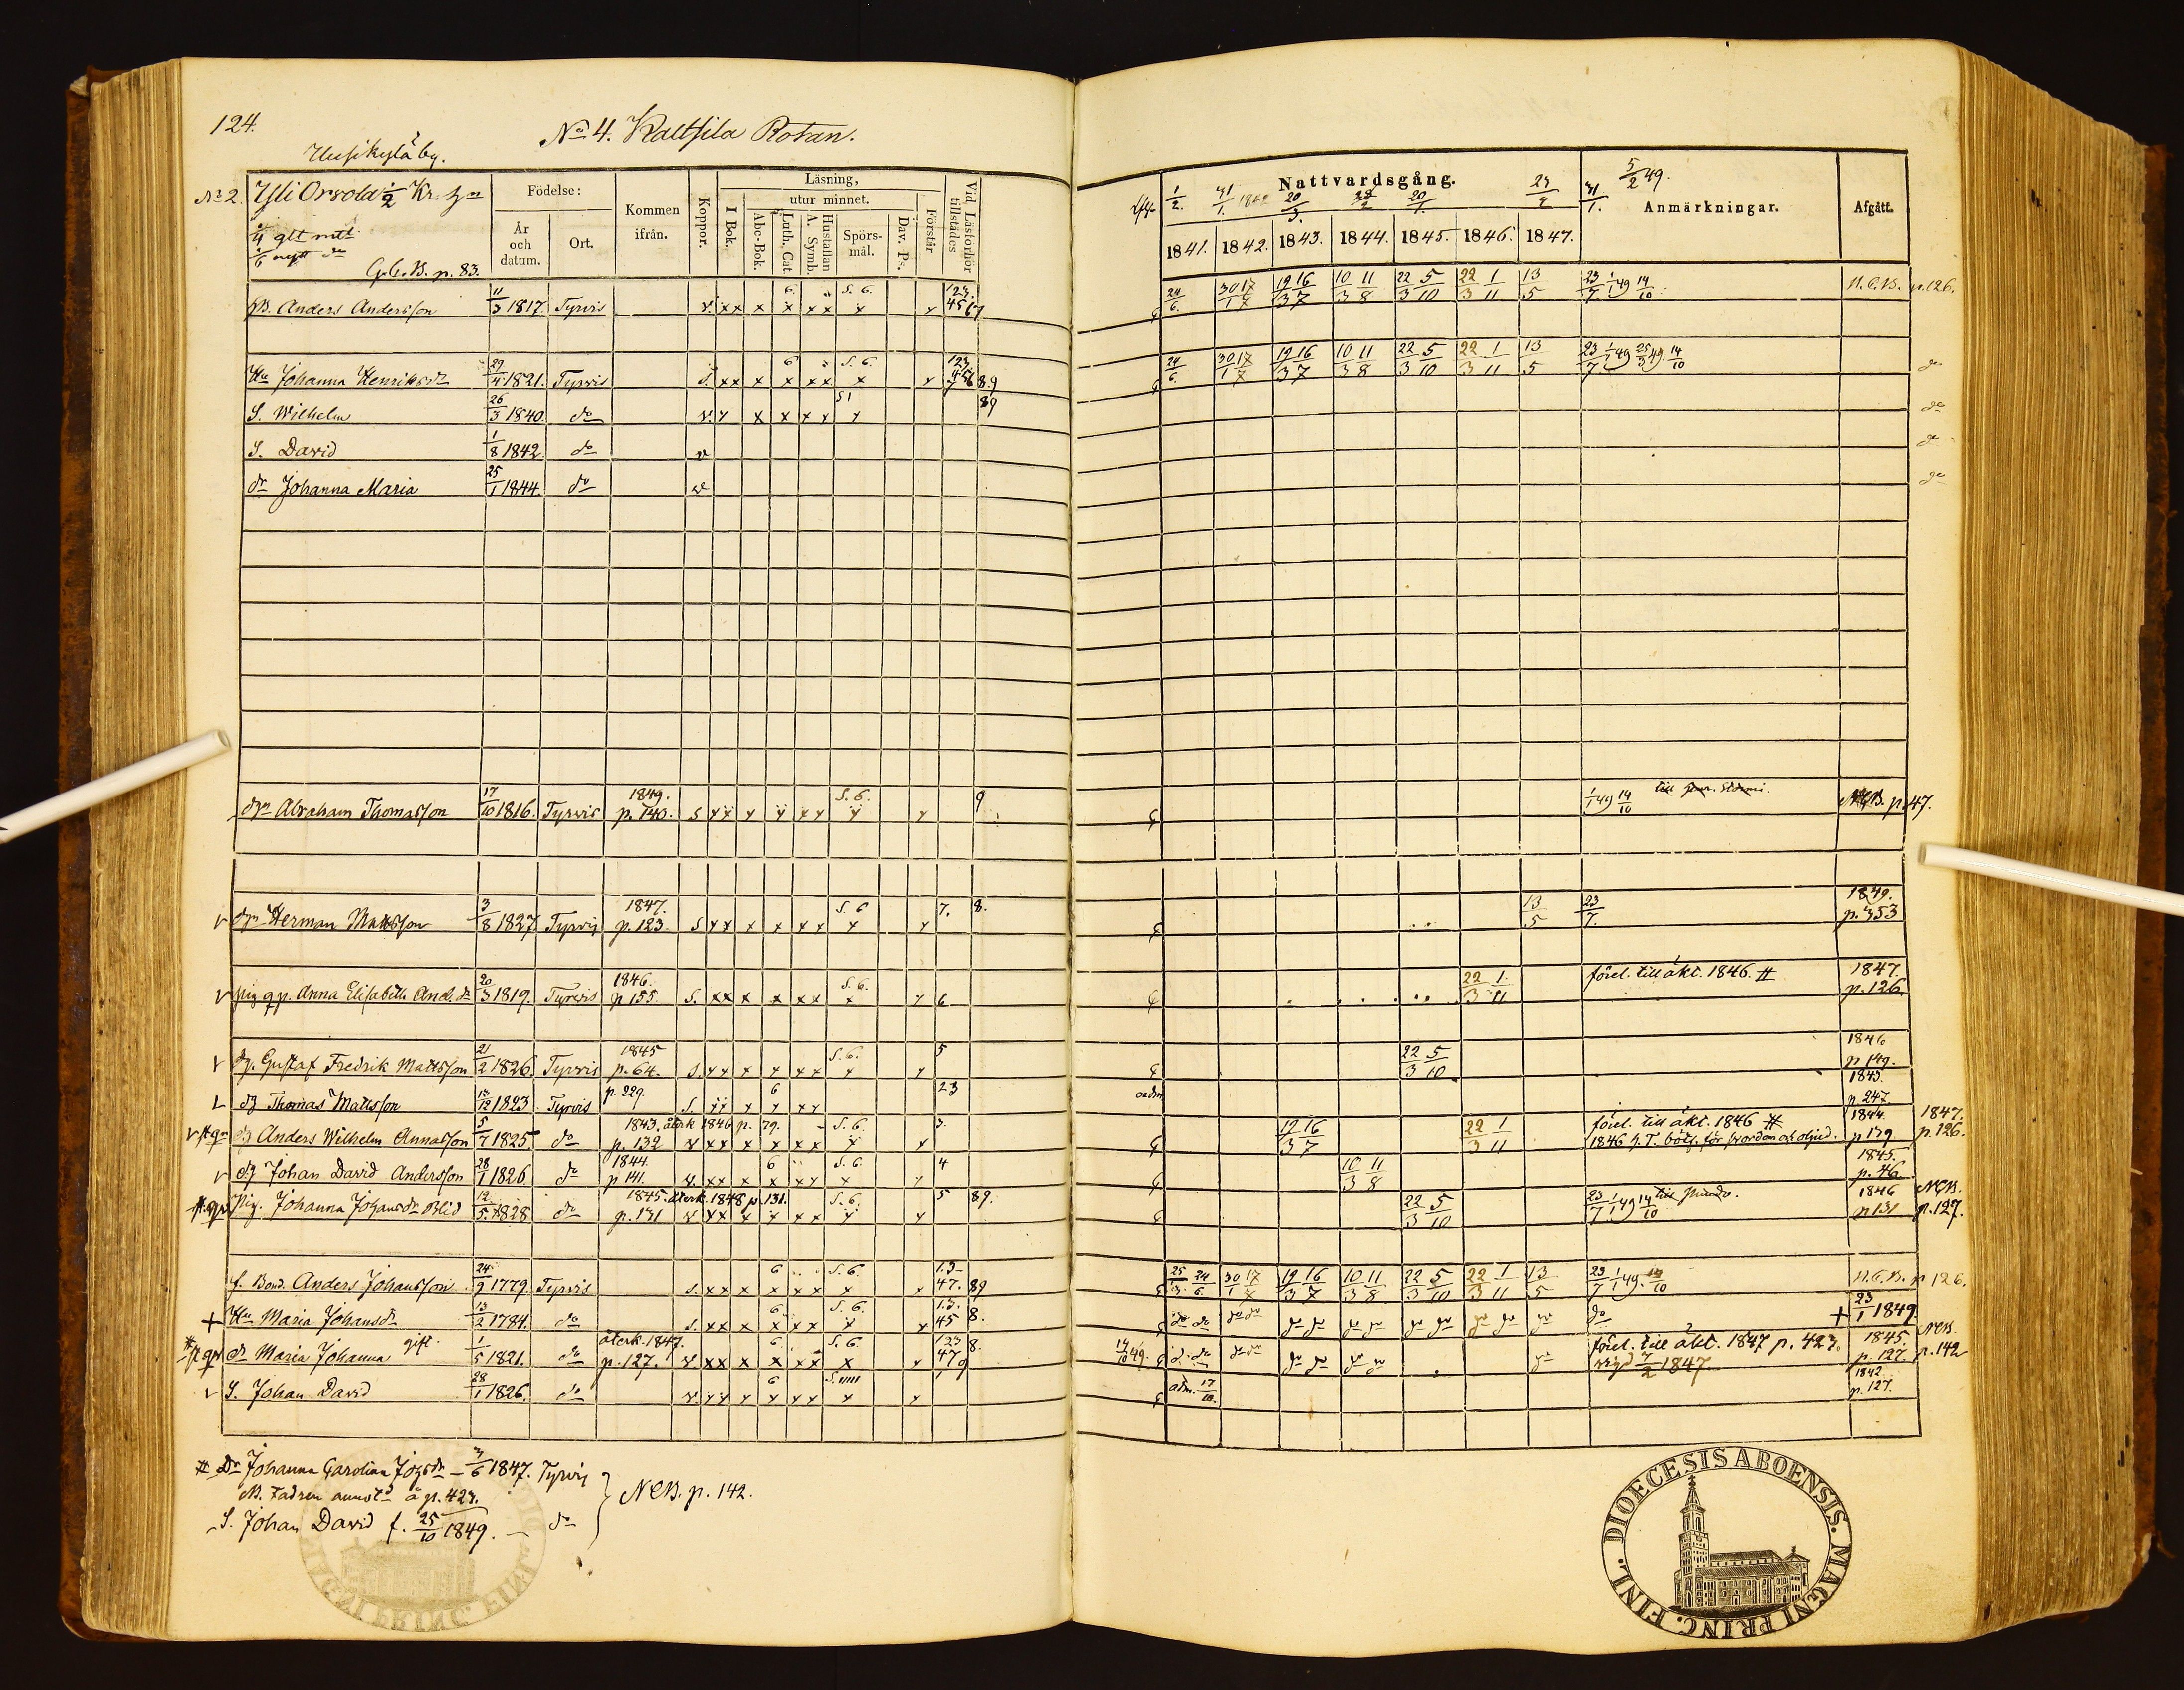 124.
No 4. Kaltsila Rotan.
Uusikylä by.
No 2. Yli Orvola 1/2 Kr. hn
G.C.B. p. 83.
Födelse:
År och datum.
Ort.
Kommen ifrån.
Koppor.
Läsning,
I Bok.
utur minnet.
Abc-Bok.
Luth. Cat
Hustaflan A. Symb.
Spörsmål.
Dav. Ps.
Förstår
Vid Läsförhör tillstädes
Nattvardsgång.
1841. 1842. 1843. 1844. 1845. 1846. 1847.
5/2 49.
Anmärkningar.
Afgått.
B. Anders Andersson 11/3 1817. Tyrvis v. xx x x xx x x 24/6. 30/1 17/7 19/3 16/7 10/3 11/8 22/3 5/10 22/3 1/11 13/5 23/7 1/1 49 14/10 N.C.B. p.126.
Hu Johanna Henriksdr 29/4 1821. Tyrvis S. xx x x xx x x 89 24/6. 30/1 17/7 19/3 16/7 10/3 11/8 22/3 5/10 22/3 1/11 13/5 23/7 1/1 49 25/3 49. 14/10 do
S. Wilhelm 26/3 1840. do v. x x x x x x 89 do
S. David 1/8 1842. do v do
dr Johanna Maria 25/1 1844. do v do
dgn Abraham Thomasson 17/10 1816. Tyrvis 1849. p. 140. S S. 6. 9 1/1 49 14/10 NCB. p. 47.
dgn Herman Mattsson 3/8 1827 Tyrvis 1847. p. 123. S S. 6 7. 8. 13/5 23/7. 1849. p. 353
pig Anna Elisabeth And. dr 20/3 1819. Tyrvis 1846. p 155. S. S. 6. 6 22/3 1/11 förel. till äkt. 1846. # 1847. p. 126.
dg. Gustaf Fredrik Mattsson 21/2 1826. Tyrvis 1845 p. 64. S. S. 6. 5 22/3 5/10 1846 p 149.
dg Thomas Mattsson 13/12 1823. Tyrvis p. 229. S. 6 23 oadm 1843. p. 247.
dg Anders Wilhelm Annasson 5/7 1825 do 1843. återk 1846 p. 79. p. 132 v S. 6. 3. 19/3 16/7 22/3 1/11 förel. till äkt. 1846 # 1844. p 139 1847. p. 126.
dg Johan David Andersson 28/1 1826 do 1844. p 141. v. 6 S. 6. 4 10/3 11/8 1845. p. 46
Pig. Johanna Johansdr Blid 12/5 1828 do 1845. återk. 1848 p. 131. p. 131 v S. 6. 5 89. 22/3 5/10 23/7 1/1 49 14/10 1846 p 131 NCB. p. 127.
f. Bond. Anders Johansson 24/9 1779. Tyrvis S. 6 S. 6. 1.3 47. 89 25/3. 24/6. 30/1 17/7 19/3 16/7 10/3 11/8 22/3 5/10 22/3 1/11 13/5 23/7 1/1 49. 14/10 N.C.B. p 126.
+ Hu Maria Johansdr 13/2 1784. do S. 6. S. 6. 1.3. 45 8. do do do do do do do do + 23/1 1849.
dr Maria Johanna gift. 1/5 1821. do återk. 1847. p. 127. v 6. S. 6. 123 47 8. 9 14/10 49. do do do do do förel. till äkt. 1847 p. 423. vigd 7/2 1847 1845 p. 127. NCB. p. 142
S. Johan David 28/1 1826. do v. 6 adm. 17/10. 1842. p. 127.
# Dr Johanna Carolina Johsdr – 3/6 1847. Tyrvis
NB. Fadren annotd å p. 423.
S. Johan David f. 25/10 1849. – do
NCB. p. 142.
DIOECESIS ABOENSIS. MAGNI PRINC. FINL.